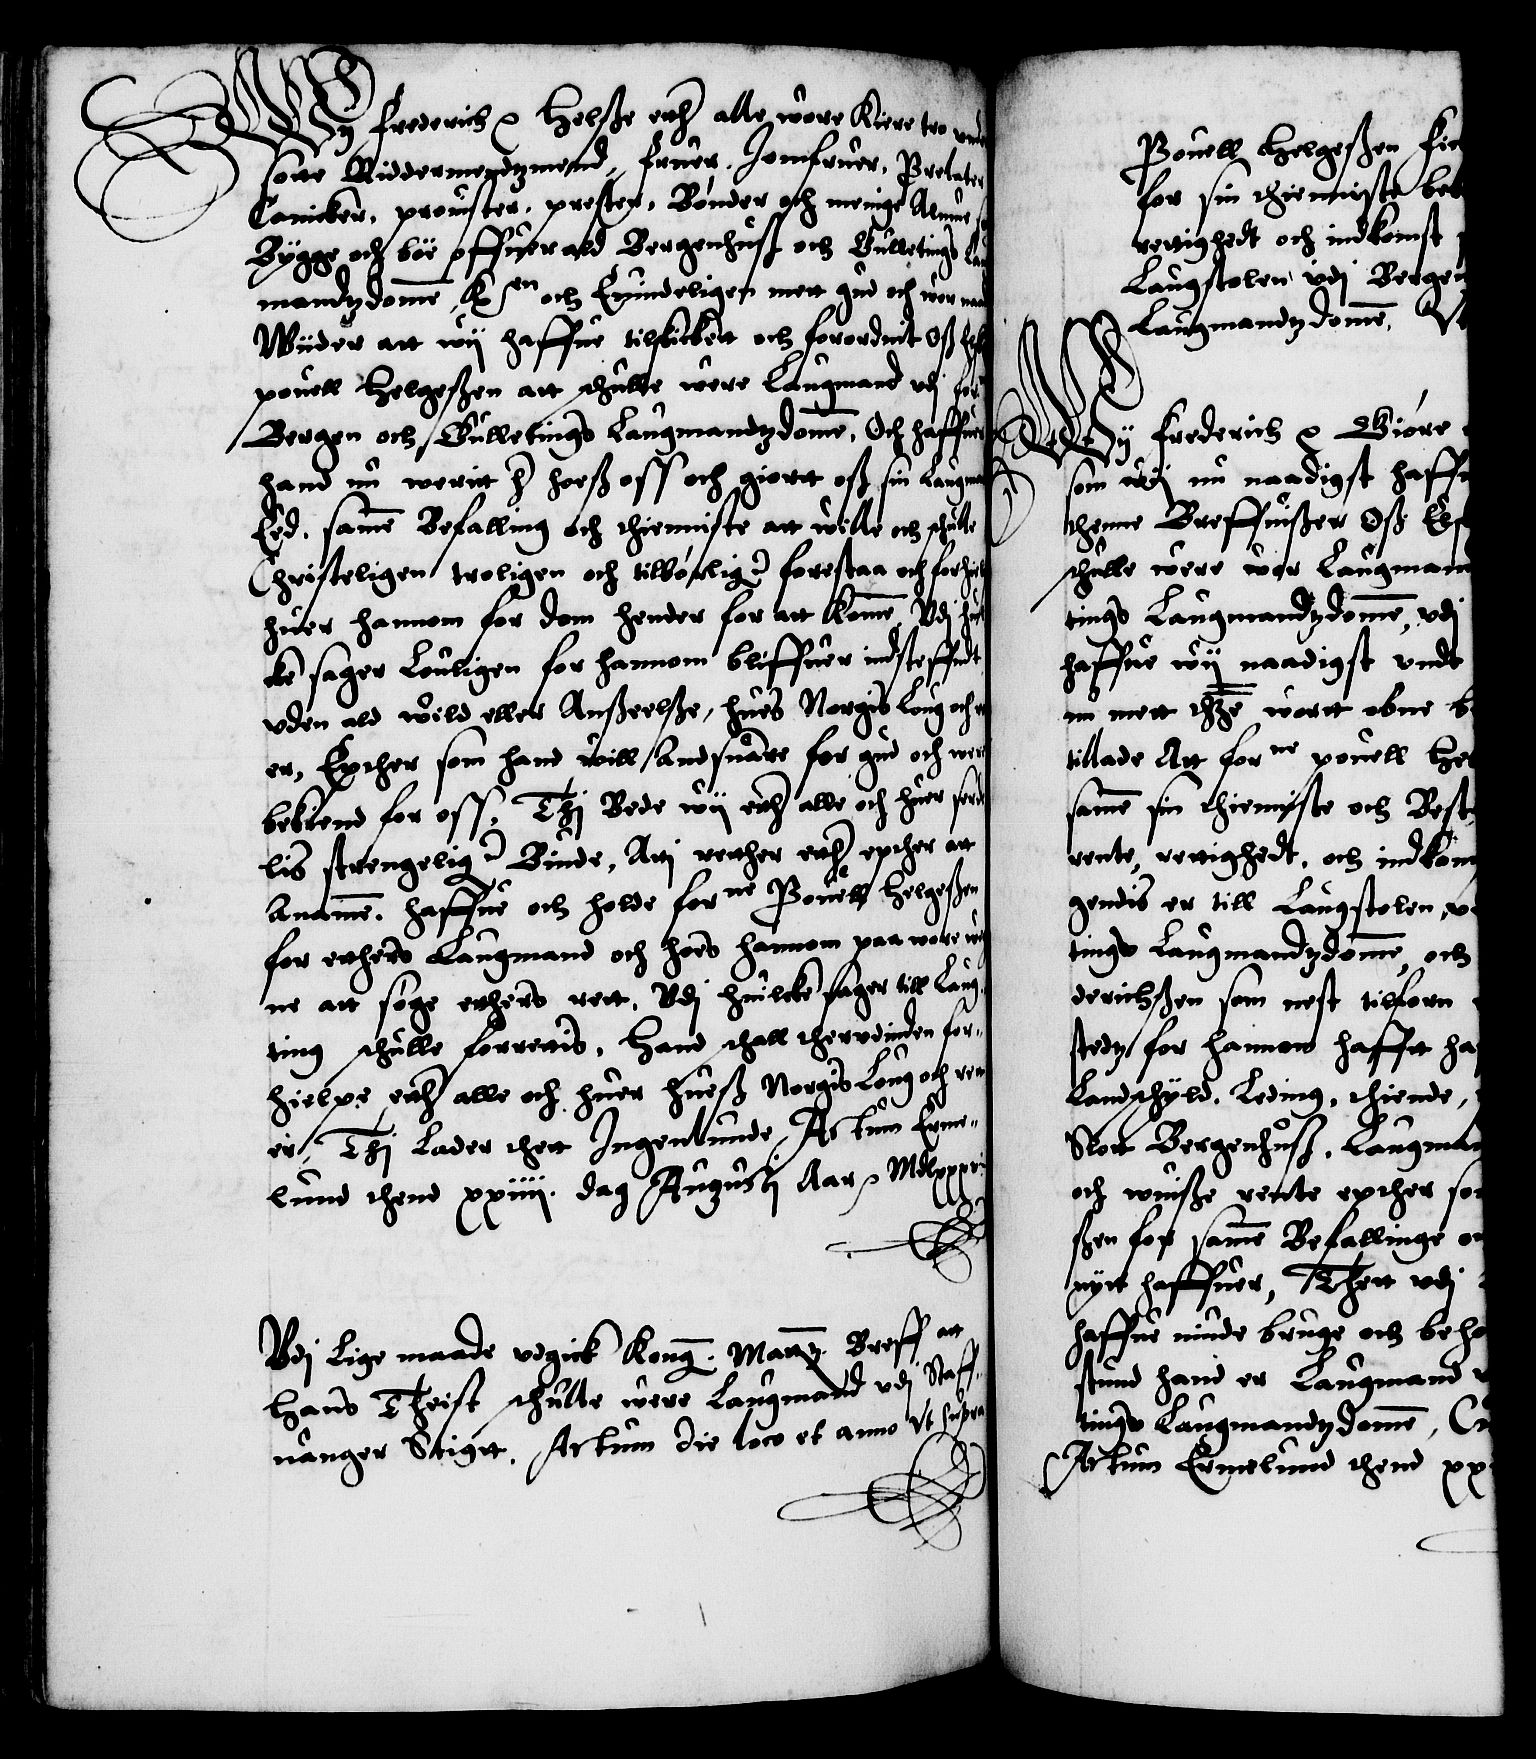 Wy Frederich etc Helsse ether alle wore Kiere tro vnder
sotte Riddermendtzmend, fruer. Jomfruer, Prelater
Canicker, prouster, prester, Bønder och menige Almue
Bygge och boe offuer ald Bergenhuss och Gulletings Lau
mandtzdomme, K sen och Euindeligen mett gud och wor naad
Wiider att wij haffue tilskickett och forordnit Oss
pouell Helgessen att schulle were Laugmand vdj for
Bergen och Gulletings Laugmandtzdomme, Och haffuer
hand nu weritt her hoess oss och giortt oss sin Laugma
Eed, samme Befalling och thienniste att wille och schulle
Christeligen troligen och tilbørliger forestaa och forhielp
huer hannom for dom hender for att komme, Vdj huil
cke sager Louligen for hannom bliffuer indsteffndt
vden ald wild eller Ansseelsse, hues Norgis Loug och
er, Epther som hand will Andsuare for gud och were
bekiend for oss, Thj Bede wij ether alle och huer serde
lis strengeliger Biude, Atj retther ether epther att
Anamme, haffue och holde forne Pouell Helgessen
for ethers Laugmand och hoes hannom paa wore
ne att søge ethers rett, Vdj huilcke sager till Laug
ting schulle forrettis, Hand schall thervdinden for-
hielpe ether alle och huer huess Norgis Loug och rett
er, Thj Lader thett Ingenlunde, Actum Erme-
lund thend xxiiij. dag Augustj Aar etc Mdlxxx
Vdj Lige maade vdgick Kong. Matz. Breff att
Hans Theist schulle were Laugmand vdj Staff-
uanger Stigtt, Actum die loco et anno vt supra
Pouell Helgessen
for sin thienniste
rettighedt och indkomst
Laugstolen vdj Bergen
Laugmandtzdomme,
Wij Frederich etc Giøre
som wij nu naadigst haffue
thenne Breffuisser Oss
schulle were wor Laugmand
tings Laugmandtzdomme, vdj
haffue wij naadigst vndt
nu mett thze wortt obne
tillade Att forne pouell Hel
samme sin thienniste och Best
rente, rettighedt, och indkom
gendis er till Laugstolen
tings Laugmandtzdomme, och
derichssen som nest tilforn
stedtz for hannom hafft ha
Landschyld, Leding, thiende,
Slott Bergenhuss, Laugman
och wuisse rente epther som
ssen for samme Befallinge
nytt haffuer, Thett vdj
haffue niude bruge och beho
stund hand er Laugmand
tings Laugmandtzdomme,
Actum Ermelund thend xx